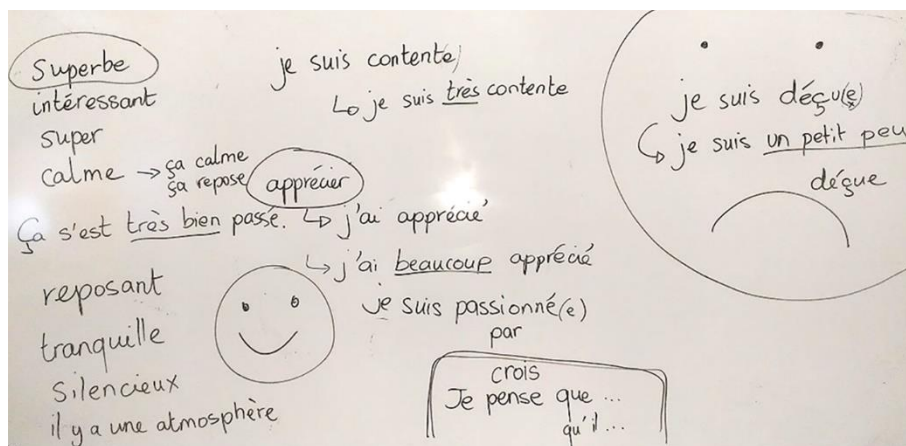 Superbe
intéressant
super
calme → ça calme
ça repose
Ça s'est très bien passé.
reposant
tranquille
Silencieux
il y a une atmosphère
je suis contente
↳ je suis très contente
apprécier
↳ j'ai apprécié
↳ j'ai beaucoup apprécié
je suis passionné(e)
par
crois
Je pense que ...
qu'il ...
je suis déçu(e)
↳ je suis un petit peu
déçue